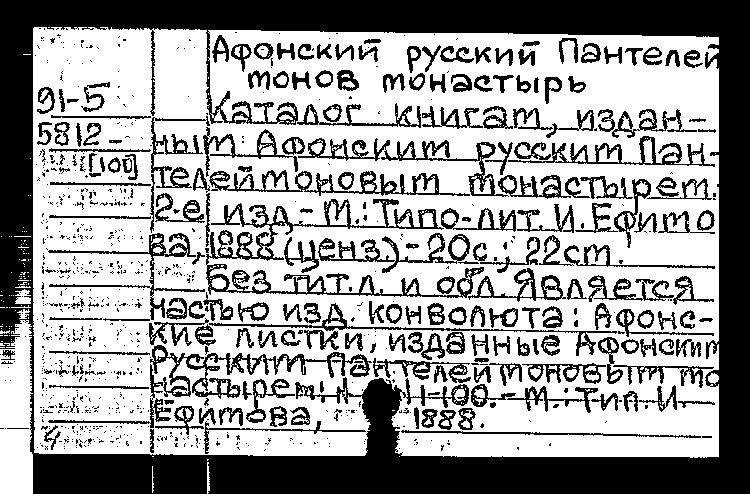 Афонский русский Пантелей
монов монастырь
91-5
Каталог книгам, издан-
5812-
ным Афонским русским Пан-
[100]
телеймоновым монастырем.
2-е изд.- М.: Типо-лит. И. Ефимо
ва, 1888 (ценз.).- 20с.; 22см.
Без тит.л. и обл. Является
частью изд. конволюта: Афонс-
кие листки, изданные Афонским
Русским Пантелеймоновым мо
настырем: 1-100.- М.: Тип. И.
Ефимова, 1888.
4